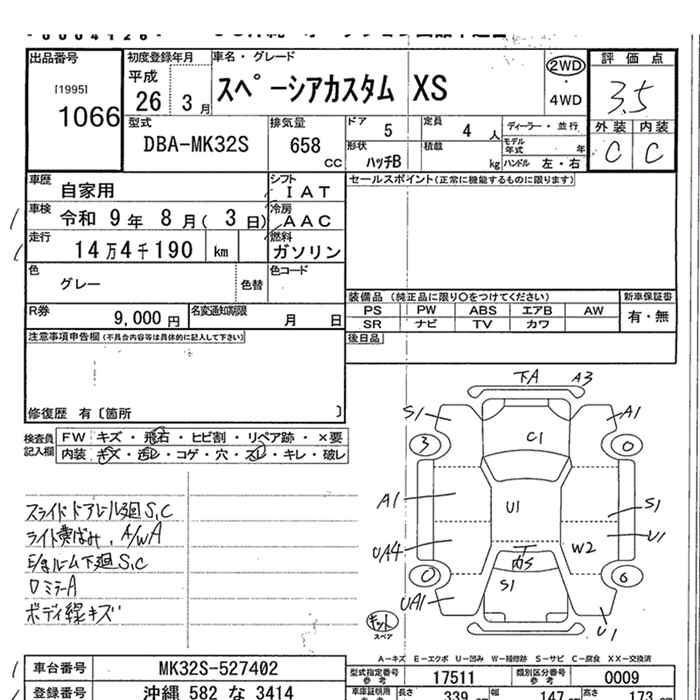 出品番号
[1995]
1066
初度登録年月
平成
26 3月
車名・グレード
スペーシアカスタム XS
2WD
・
4WD
評価点
3.5
外装 内装
C C
型式
DBA-MK32S
排気量
658
CC
ドア 5
定員 4人
形状 ハッチB
積載 kg
ディーラー・並行
モデル年式 年
ハンドル 左・右
車歴 自家用
シフト IAT
車検 令和 9年 8月( 3日)
冷房 AAC
走行 14万4千190 km
燃料 ガソリン
色 グレー
色替
色コード
セールスポイント(正常に機能するものに限ります)
R券 9,000円
名変通知期限 月 日
装備品(純正品に限り○をつけてください)
新車保証書
PS PW ABS エアB AW
有・無
SR ナビ TV カワ
注意事項申告欄(不具合内容等は具体的に記入して下さい)
後日品
修復歴 有〔箇所 〕
検査員記入欄
FW キズ・飛石・ヒビ割・リペア跡・×要
内装 キズ・汚レ・コゲ・穴・スレ・キレ・破レ
スライドドアレール廻S,C
ライト黄ばみ、A/WA
ルーム下廻S,C
ロミラーA
ボディ線キズ
下A A3
S1 A1
3 0
C1
A1 U1 S1
UA4 W2 U1
内S
0 6
S1
UA1 U1
キット
スペア
A-キズ E-エクボ U-凹み W-補修跡 S-サビ C-腐食 XX-交換済
車台番号 MK32S-527402
型式指定番号 参考 17511
類別区分番号 参考 0009
登録番号 沖縄 582 な 3414
長さ 339 cm
幅 147 cm
高さ 173 cm